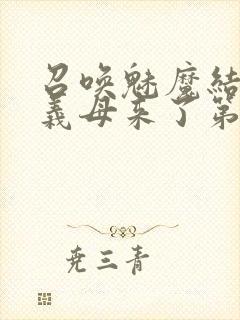 召唤魅魔结
义母来了第
尧三青